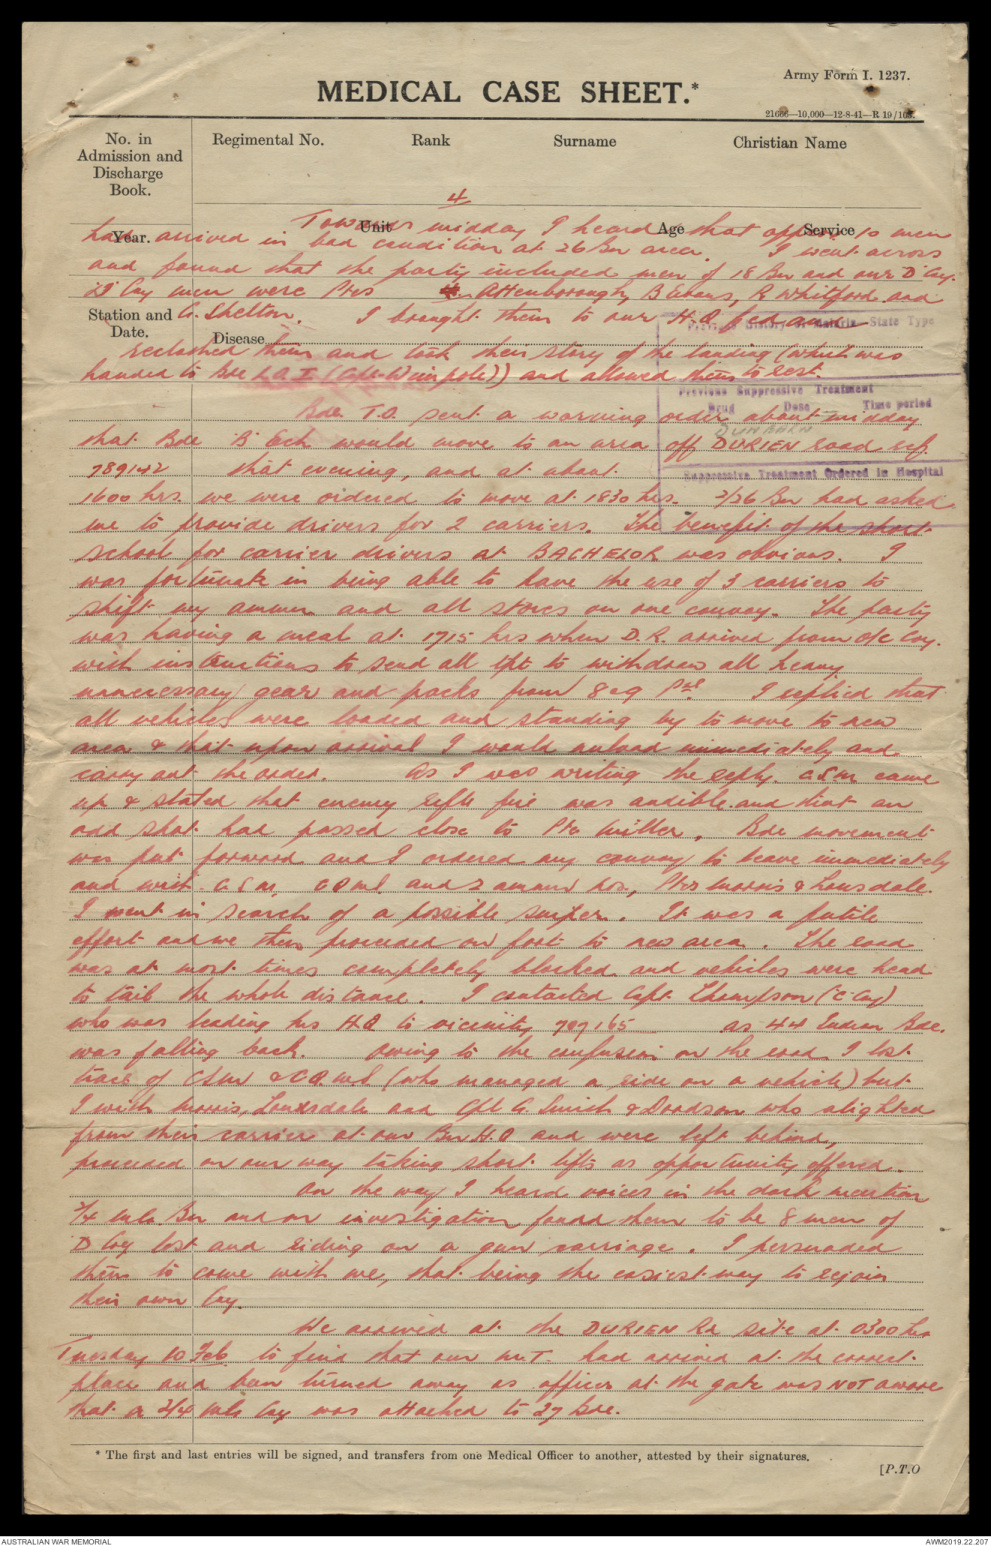 Army Form I. 1237.
MEDICAL CASE SHEET.*
21666—10,000—12-8-41—R 19/168.
No. in Admission and Discharge Book.
Regimental No. Rank Surname Christian Name
4
Year. Unit Age Service
Towards midday I heard that approx 10 men
had arrived in bad condition at 26 Bn area. I went across
and found that the party included men of 18 Bn and our D Coy.
D Coy men were Ptes Attenborough, B Evans, R Whitford and
Station and Date.
G. Shelton. I brought them to our H.Q fed and
Previous History of Malaria State Type
Disease
reclothed them and took their story of the landing (which was
handed to Bde I.O. (Capt Wimpole)) and allowed them to rest.
Previous Suppressive Treatment
Drug Dose Time period
Bde T.O. sent a warning order about midday
DUNBARN
that Bde 'B' Ech would move to an area off DURIEN road ref.
Suppressive Treatment Ordered in Hospital
789142 that evening, and at about
1600 hrs. we were ordered to move at 1830 hrs. 2/26 Bn had asked
me to provide drivers for 2 carriers. The benefit of the short
school for carrier drivers at BACHELOR was obvious. I
was fortunate in being able to have the use of 3 carriers to
shift my ammn and all stores on one convoy. The party
was having a meal at 1715 hrs when D.R. arrived from o/c Coy.
with instructions to send all tpt to withdraw all heavy
unnecessary gear and packs from 8 & 9 Pns. I replied that
all vehicles were loaded and standing by to move to new
area & that upon arrival I would unload immediately and
carry out the order. As I was writing the reply. C.S.M. came
up & stated that enemy rifle fire was audible and that an
odd shot had passed close to Pte Miller. Bde movement
was put forward and I ordered my convoy to leave immediately
and with C.S.M, C.Q.M.S. and 2 amand Ptes Morris & Lonsdale.
I went in search of a possible sniper. It was a futile
effort and we then proceeded on foot to new area. The road
was at most times completely blocked and vehicles were head
to tail the whole distance. I contacted Capt. Thompson ('C' Coy)
who was leading his H.Q to vicinity 707165 as 44 Indian Bde.
was falling back. Owing to the confusion on the road I lost
trace of CSM & CQMS (who managed a ride on a vehicle) but
I with Morris, Lonsdale and Cpl G. Smith & Dodson who alighted
from their carrier at our Bn H.Q and were left behind,
proceeded on our way taking short lifts as opportunity offered.
On the way I heard voices in the dark mention
2/4 MG Bn and on investigation found them to be 8 men of
D Coy lost and riding on a gun carriage. I persuaded
them to come with me, that being the easiest way to rejoin
their own Coy.
We arrived at the DURIEN Rd site at 0300 hrs
Tuesday 10 Feb to find that our M.T. had arrived at the correct
place and been turned away as officer at the gate was NOT aware
that a 2/4 MG Coy was attached to 27 Bde.
* The first and last entries will be signed, and transfers from one Medical Officer to another, attested by their signatures.
[P.T.O
AUSTRALIAN WAR MEMORIAL
AWM2019.22.207